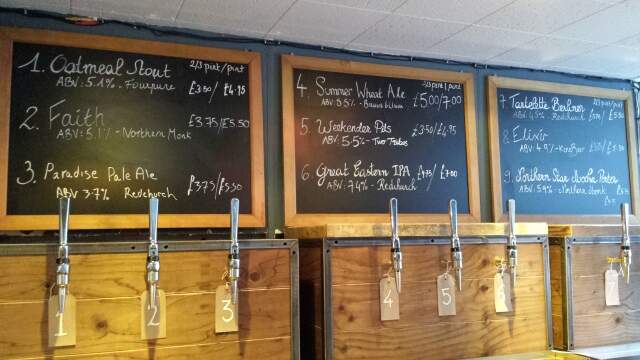 2/3 pint / pint
1. Oatmeal Stout
ABV: 5.1% - Fourpure £3.50/ £4.95
2. Faith £3.75/£5.50
ABV: 5.1% - Northern Monk
3. Paradise Pale Ale
ABV 3.7% Redchurch £3.75/£5.50
2/3 pint / pint
4. Summer Wheat Ale £5.00/7.00
ABV:
5. Weekender Pils £3.50/£4.95
ABV: 5.5% - Two Tribes
6. Great Eastern IPA
ABV: 7.4% - Redchurch /£7.00
7 Tartelette Berliner
ABV: 4.5% Redchurch
8. Elixir
ABV 4.9%
9. Northern Star Mocha Porter
ABV: 5.9% - Northern Monk
1
2
3
4
5